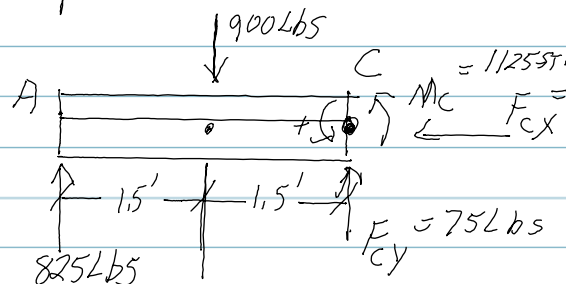 900Lbs
C
A
+
Mc
= 1125
Fcx =
1.5' 1.5'
Fcy = 75Lbs
825Lbs